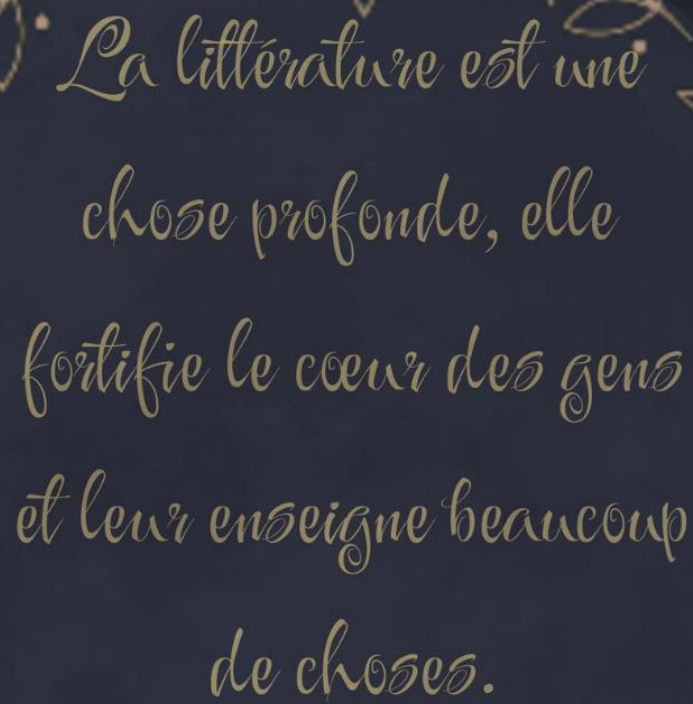 La littérature est une
chose profonde, elle
fortifie le cœur des gens
et leur enseigne beaucoup
de choses.